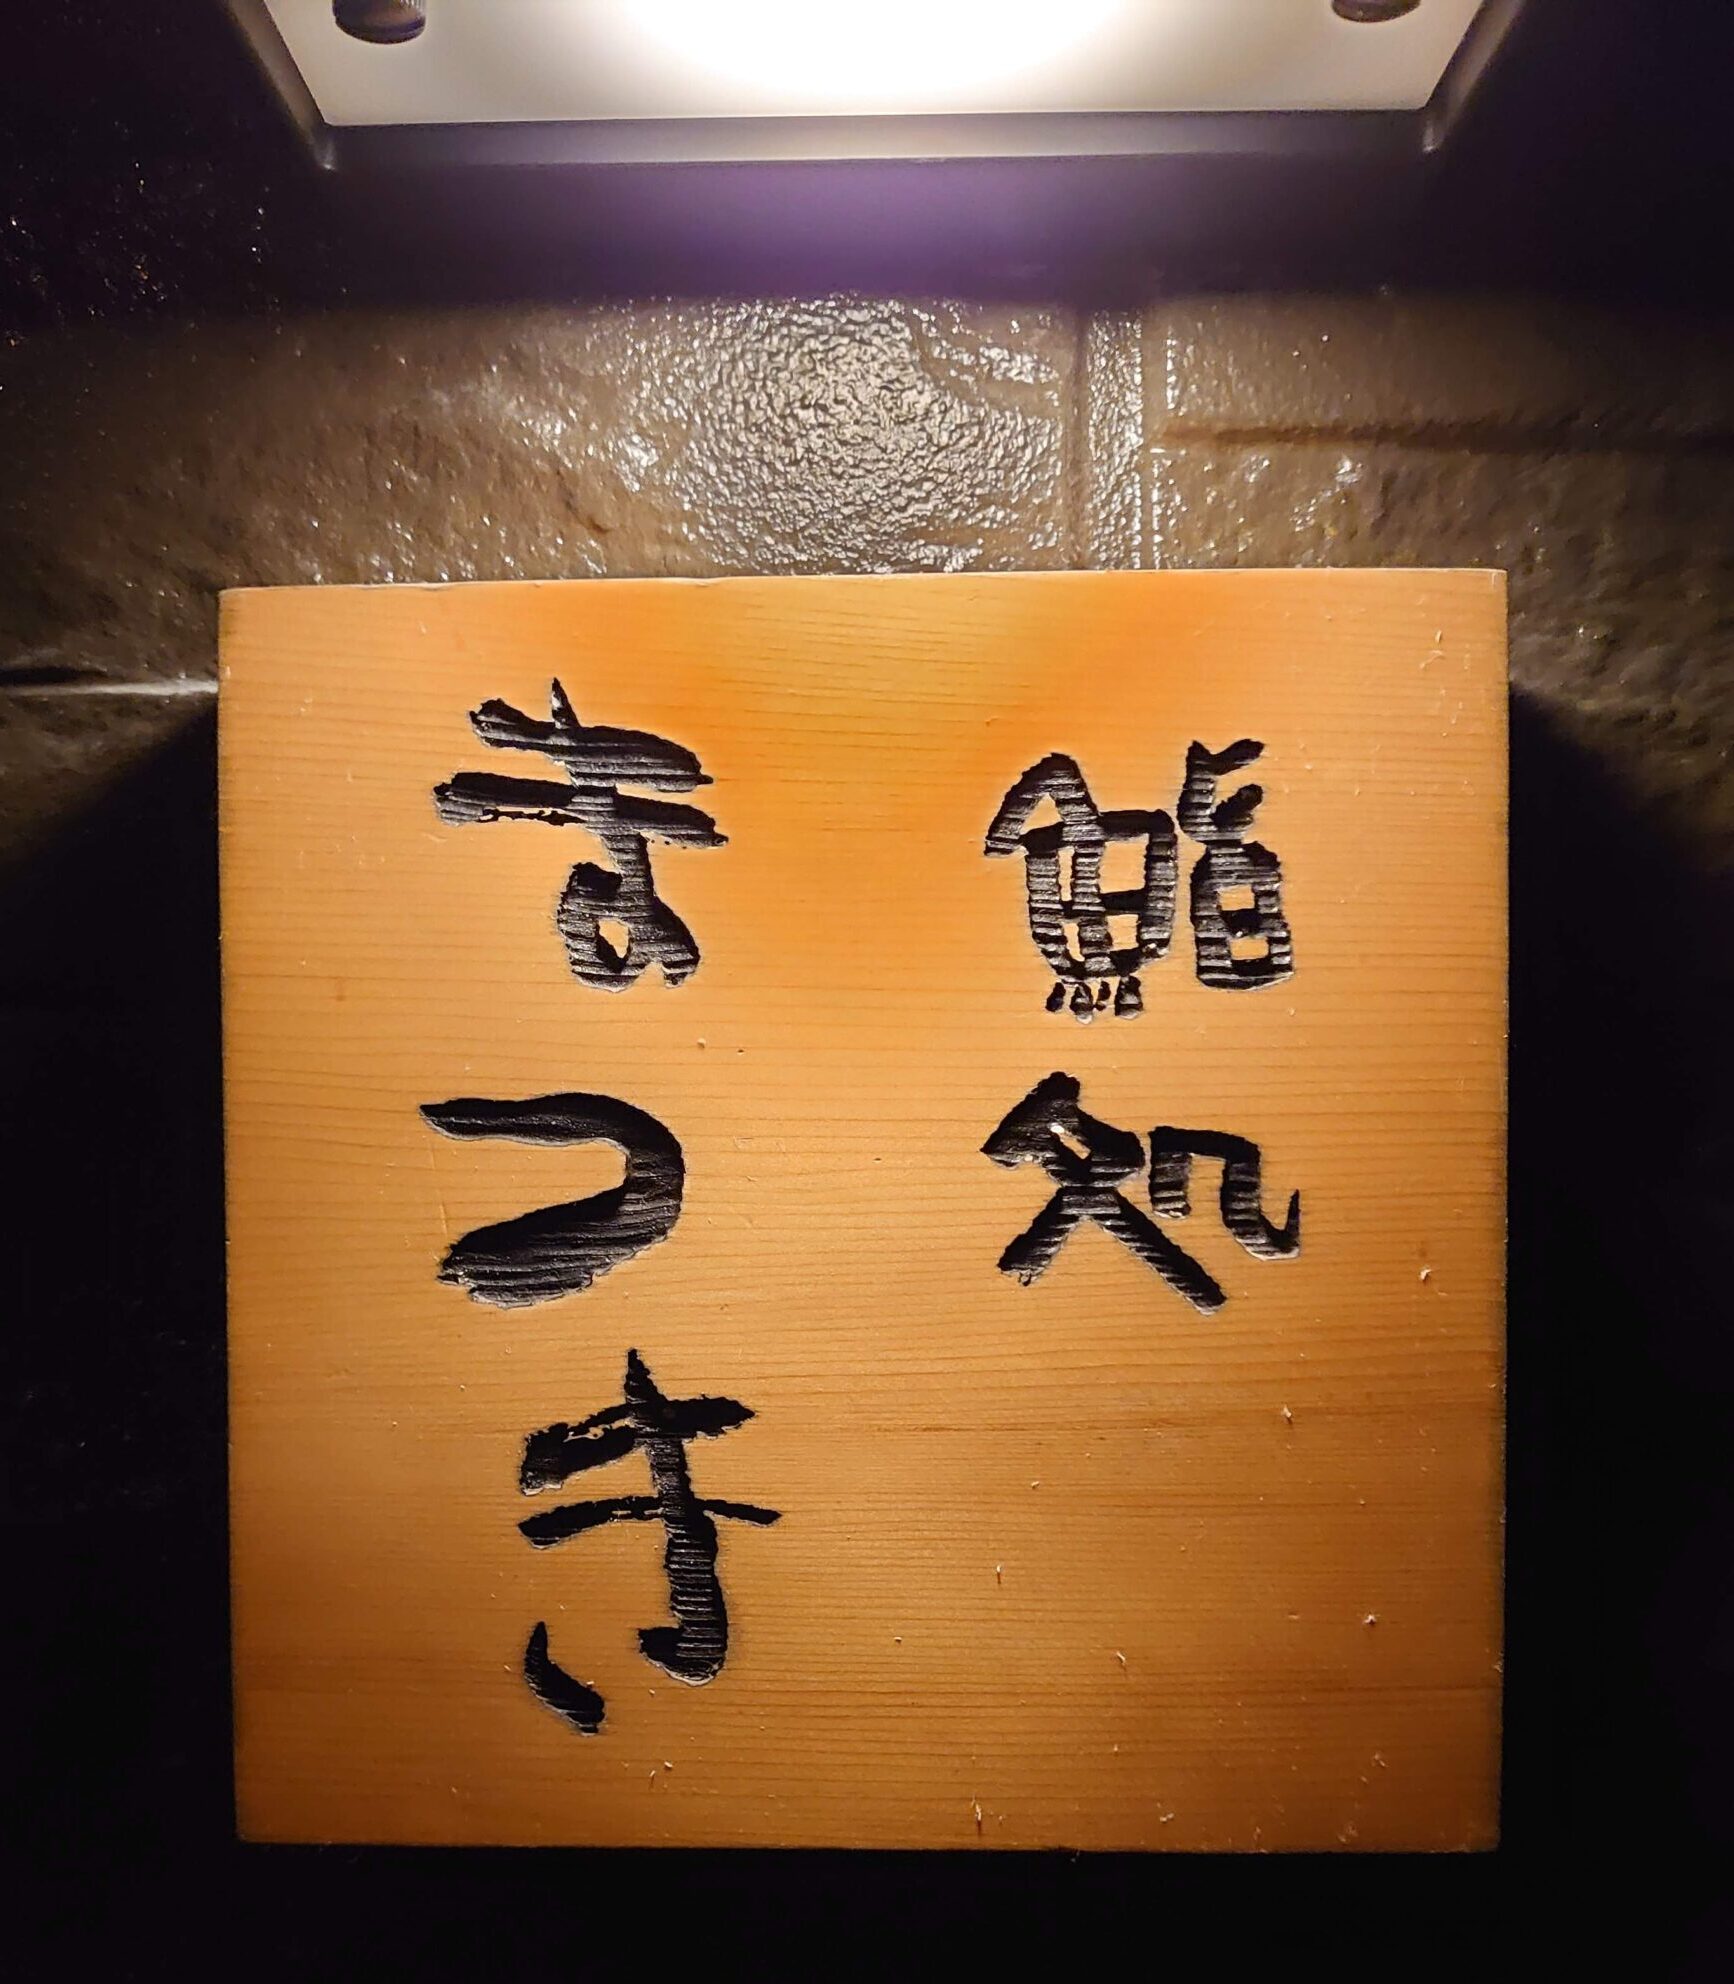 鮨処
まつき